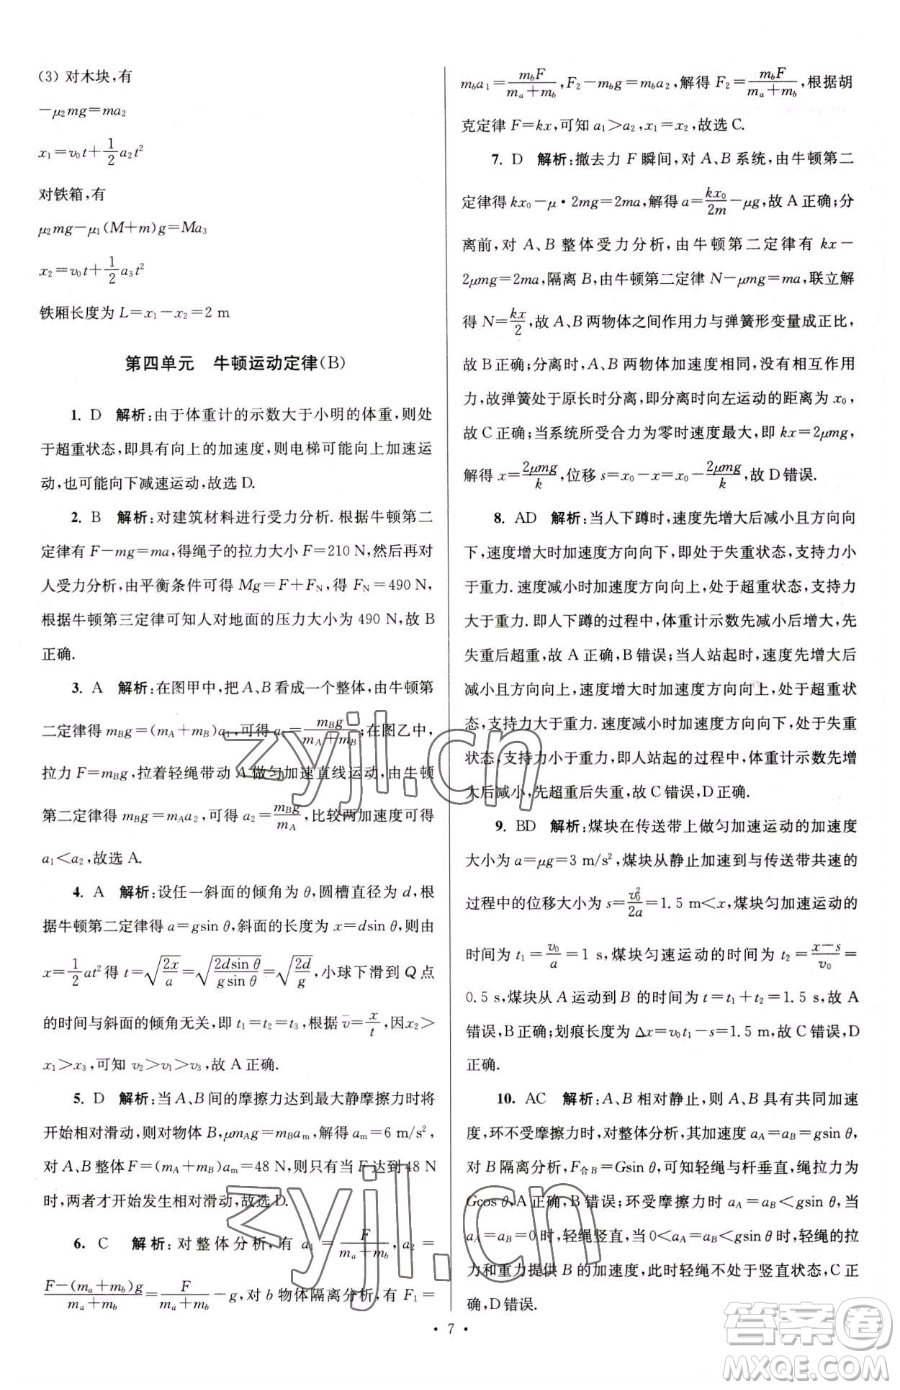 (3) 对木块,有
−μ₂mg=ma₂
x₁=v₀t+\frac{1}{2}a₂t²
对铁箱,有
μ₂mg−μ₁(M+m)g=Ma₃
x₂=v₀t+\frac{1}{2}a₃t²
铁厢长度为 L=x₁−x₂=2 m
第四单元 牛顿运动定律(B)
1. D 解析:由于体重计的示数大于小明的体重,则处
于超重状态,即具有向上的加速度,则电梯可能向上加速运
动,也可能向下减速运动,故选 D.
2. B 解析:对建筑材料进行受力分析. 根据牛顿第二
定律有 F−mg=ma,得绳子的拉力大小 F=210 N,然后再对
人受力分析,由平衡条件可得 Mg=F+F_N,得 F_N=490 N,
根据牛顿第三定律可知人对地面的压力大小为 490 N,故 B
正确.
3. A 解析:在图甲中,把 A、B 看成一个整体,由牛顿第
二定律得 m_Bg=(m_A+m_B)a₁,可得 a₁=\frac{m_Bg}{m_A+m_B};在图乙中,
拉力 F=m_Bg,拉着轻绳带动 A 做匀加速直线运动,由牛顿
第二定律得 m_Bg=m_Aa₂,可得 a₂=\frac{m_Bg}{m_A},比较两加速度可得
a₁<a₂,故选 A.
4. A 解析:设任一斜面的倾角为 θ,圆槽直径为 d,根
据牛顿第二定律得 a=gsin θ,斜面的长度为 x=dsin θ,则由
x=\frac{1}{2}at² 得 t=\sqrt{\frac{2x}{a}}=\sqrt{\frac{2dsin θ}{gsin θ}}=\sqrt{\frac{2d}{g}},小球下滑到 Q 点
的时间与斜面的倾角无关,即 t₁=t₂=t₃,根据 \bar{v}=\frac{x}{t},因x₂>
x₁>x₃,可知 v₂>v₁>v₃,故 A 正确.
5. D 解析:当 A、B 间的摩擦力达到最大静摩擦力时将
开始相对滑动,对物体 B,μm_Ag=m_Ba_m,解得 a_m=6 m/s²,
对 A、B 整体 F=(m_A+m_B)a_m=48 N,则只有当 F>48 N
时,两者才开始发生相对滑动,故选 D.
6. C 解析:对整体分析,有 a₁=\frac{F}{m_a+m_b},a₂=
\frac{F−(m_a+m_b)g}{m_a+m_b}=\frac{F}{m_a+m_b}−g,对 b 物体隔离分析,有 F₁=
m_ba₁=\frac{m_bF}{m_a+m_b},F₂−m_bg=m_ba₂,解得 F₂=\frac{m_bF}{m_a+m_b},根据胡
克定律 F=kx,可知 a₁>a₂,x₁=x₂,故选 C.
7. D 解析:撤去力 F 瞬间,对 A、B 系统,由牛顿第二
定律得 kx₀−μ·2mg=2ma,解得 a=\frac{kx₀}{2m}−μg,故 A 正确;分
离前,对 A、B 整体受力分析,由牛顿第二定律有 kx−
2μmg=2ma,隔离 B,由牛顿第二定律 N−μmg=ma,联立解
得 N=\frac{kx}{2},故 A、B 两物体之间作用力与弹簧形变量成正比,
故 B 正确;分离前一瞬间,A、B 两物体加速度相同,无相互力,
故弹簧处于原长时分离,即分离时向左运动的距离为 x₀,
故 C 正确;当系统所受合力为零时速度最大,即 kx=2μmg,
解得 x=\frac{2μmg}{k},位移 s=x₀−x=x₀−\frac{2μmg}{k},故 D 错误.
8. AD 解析:当人下蹲时,速度先增大后减小且方向向
下,速度增大时加速度方向向下,处于失重状态,支持力小
于重力. 速度减小时加速度方向向上,处于超重状态,支持力
大于重力. 即人下蹲的过程中,体重计示数先减小后增大,先
失重后超重,故 A 正确,B 错误;当人站起时,速度先增大后
减小且方向向上,速度增大时加速度方向向上,处于超重状
态,支持力大于重力. 速度减小时加速度方向向下,处于失重
状态,支持力小于重力. 即人站起的过程中,体重计示数先增
大后减小,先超重后失重,故 C 错误,D 正确.
9. BD 解析:煤块在传送带上做匀加速运动的加速度
大小为 a=μg=3 m/s²,煤块从静止加速到与传送带共速的
过程中的位移大小为 s=\frac{v₀²}{2a}=1.5 m<x,煤块匀加速运动的
时间为 t₁=\frac{v₀}{a}=1 s,煤块匀速运动的时间为 t₂=\frac{x−s}{v₀}=
0.5 s,煤块从 A 运动到 B 的时间为 t=t₁+t₂=1.5 s,故 A
错误,B 正确;划痕长度为 Δx=v₀t₁−s=1.5 m,故 C 错误,D
正确.
10. AC 解析:若环与书相对静止,则 A、B 具有共同加速
度,环不受摩擦力时,对整体分析,有加速度 a_A=a_B=gsin θ,
对 B 隔离分析,F_{合B}=Gsin θ,则轻绳与杆垂直,绳拉力为
Gcos θ,A 正确,B 错误;环受摩擦力时 a_A=a_B<gsin θ,当
0<a_A=a_B<gsin θ
a_A=a_B=0 时,轻绳竖直,当 0<a_A=a_B<gsin θ 时,轻绳的拉
力和重力不可能提供水平加速度,此时轻绳不处于竖直状态,C
正确,D 错误.
• 7 •
zyjl.cn
zyjl.cn
答案圈
MXQE.COM